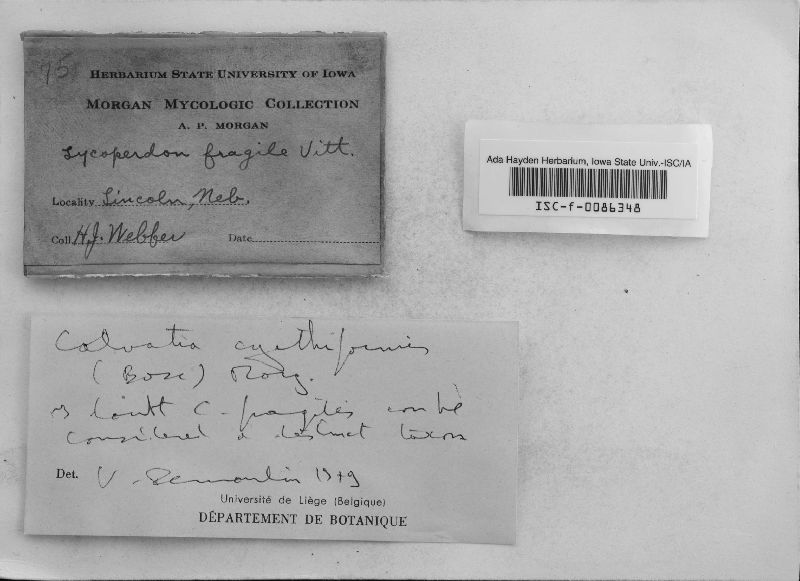 75
HERBARIUM STATE UNIVERSITY OF IOWA
MORGAN MYCOLOGIC COLLECTION
A. P. MORGAN
Lycoperdon fragile Vitt.
Locality Lincoln, Neb.
Coll. H.J. Webber Date
Ada Hayden Herbarium, Iowa State Univ.-ISC/IA
ISC-f-0086348
Calvatia cyathiformis
(Bosc) Morg.
I doubt C. fragilis can be
considered a distinct taxon
Det. V. Demoulin 1979
Université de Liège (Belgique)
DÉPARTEMENT DE BOTANIQUE